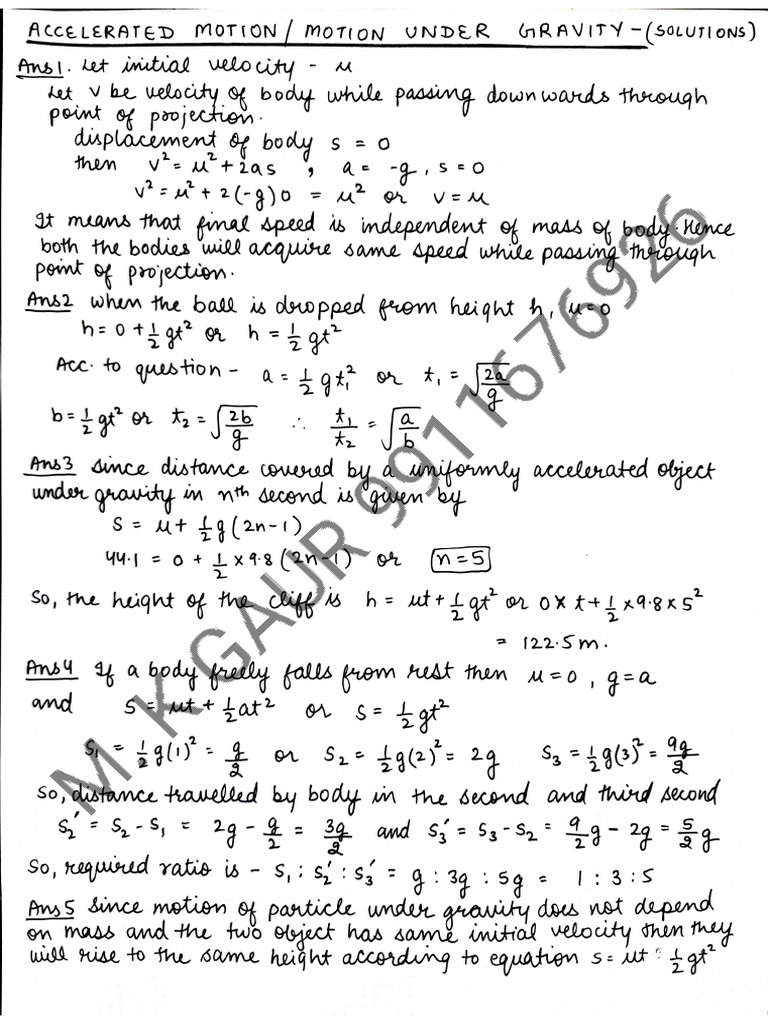 ACCELERATED MOTION / MOTION UNDER GRAVITY - (SOLUTIONS)
Ans1. Let initial velocity - u
Let v be velocity of body while passing downwards through
point of projection.
displacement of body s = 0
then v² = u² + 2as , a = -g, s = 0
v² = u² + 2(-g)0 = u² or v = u
It means that final speed is independent of mass of body. Hence
both the bodies will acquire same speed while passing through
point of projection.
Ans2 when the ball is dropped from height h, u=0
h = 0 + 1/2 gt² or h = 1/2 gt²
Acc. to question - a = 1/2 gt₁² or t₁ = √(2a/g)
b = 1/2 gt² or t₂ = √(2b/g) ∴ t₁/t₂ = √(a/b)
Ans3 Since distance covered by a uniformly accelerated object
under gravity in nth second is given by
S = u + 1/2 g(2n-1)
44.1 = 0 + 1/2 × 9.8 (2n-1) or n = 5
So, the height of the cliff is h = ut + 1/2 gt² or 0 × t + 1/2 × 9.8 × 5²
= 122.5m.
Ans4 If a body freely falls from rest then u = 0, g = a
and S = ut + 1/2 at² or s = 1/2 gt²
S₁ = 1/2 g(1)² = g/2 or S₂ = 1/2 g(2)² = 2g S₃ = 1/2 g(3)² = 9g/2
So, distance travelled by body in the second and third second
S₂' = S₂ - S₁ = 2g - g/2 = 3g/2 and S₃' = S₃ - S₂ = 9/2 g - 2g = 5/2 g
So, required ratio is - S₁ : S₂' : S₃' = g : 3g : 5g = 1 : 3 : 5
Ans5 Since motion of particle under gravity does not depend
on mass and the two object has same initial velocity then they
will rise to the same height according to equation s = ut - 1/2 gt²
M K GAUR 9911676926